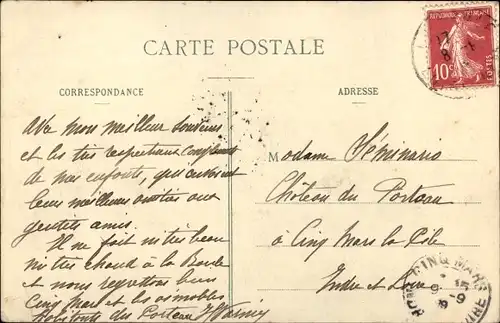 CARTE POSTALE
REPUBLIQUE FRANÇAISE
10c
POSTES
CORRESPONDANCE
ADRESSE
mon meilleur souvenir
et les très respectueux compliments
de nos enfants, qui envoient
leurs meilleures amitiés aux
gentils amis.
Il ne fait ni très beau
ni très chaud à la Baule
et nous regrettons bien
Cinq Mars et les aimables
habitants du Porteau
Madame Séminario
Château du Porteau
à Cinq Mars la Pile
Indre et Loire
CINQ MARS